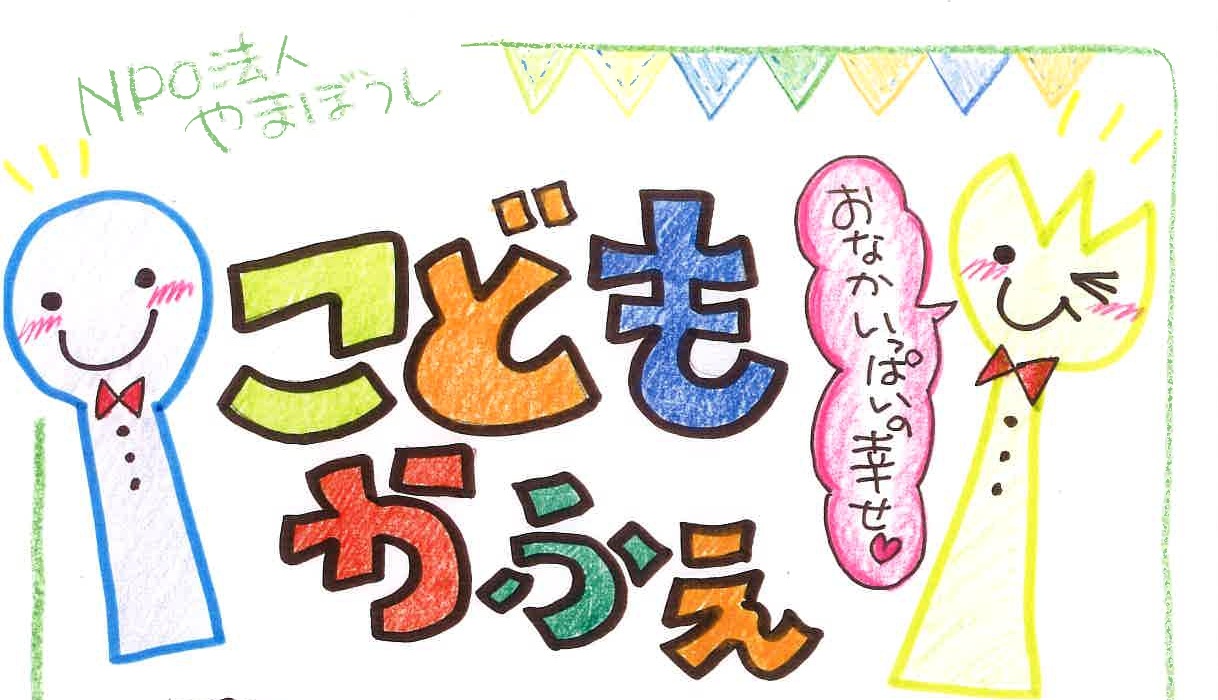 NPO法人
やまぼうし
こども
かふぇ
おなかいっぱいの幸せ♥